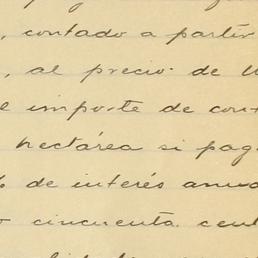 , contado a partir
, al precio de
importe de
hectárea si pag
% de interés anua
cincuenta cent